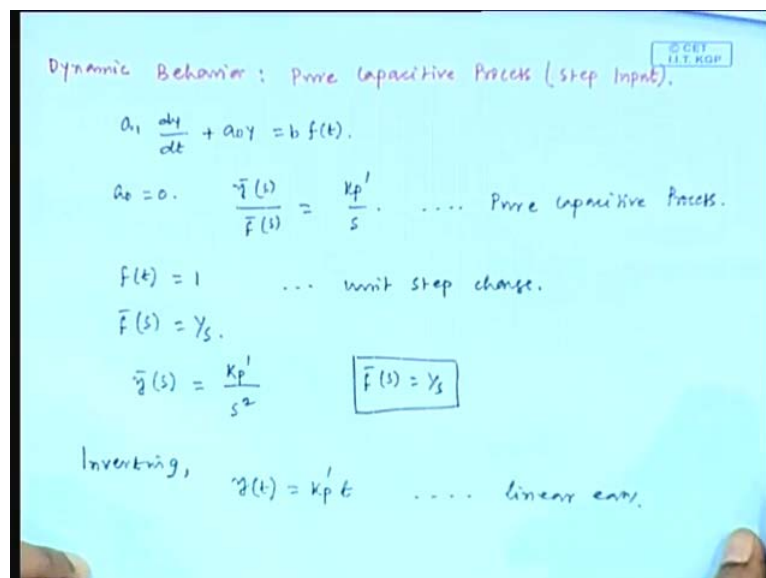 © CET
I.I.T. KGP
Dynamic Behavior : Pure Capacitive Process (Step Input).
a₁ dy/dt + a₀y = b f(t).
a₀ = 0. ȳ(s)/f̄(s) = Kp'/s. .... Pure Capacitive Process.
f(t) = 1 ... unit step change.
f̄(s) = 1/s.
ȳ(s) = Kp'/s² f̄(s) = 1/s
Inverting,
y(t) = Kp' t .... linear eqn.